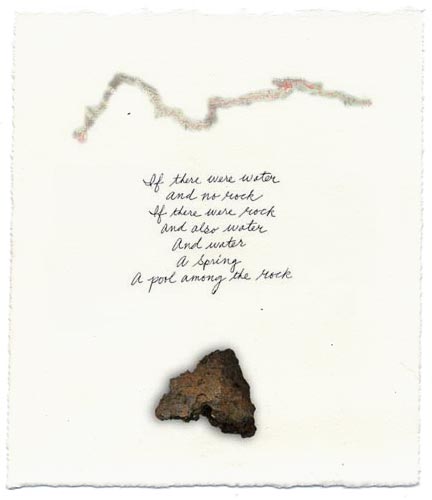 If there were water
and no rock
If there were rock
and also water
And water
A spring
A pool among the rock